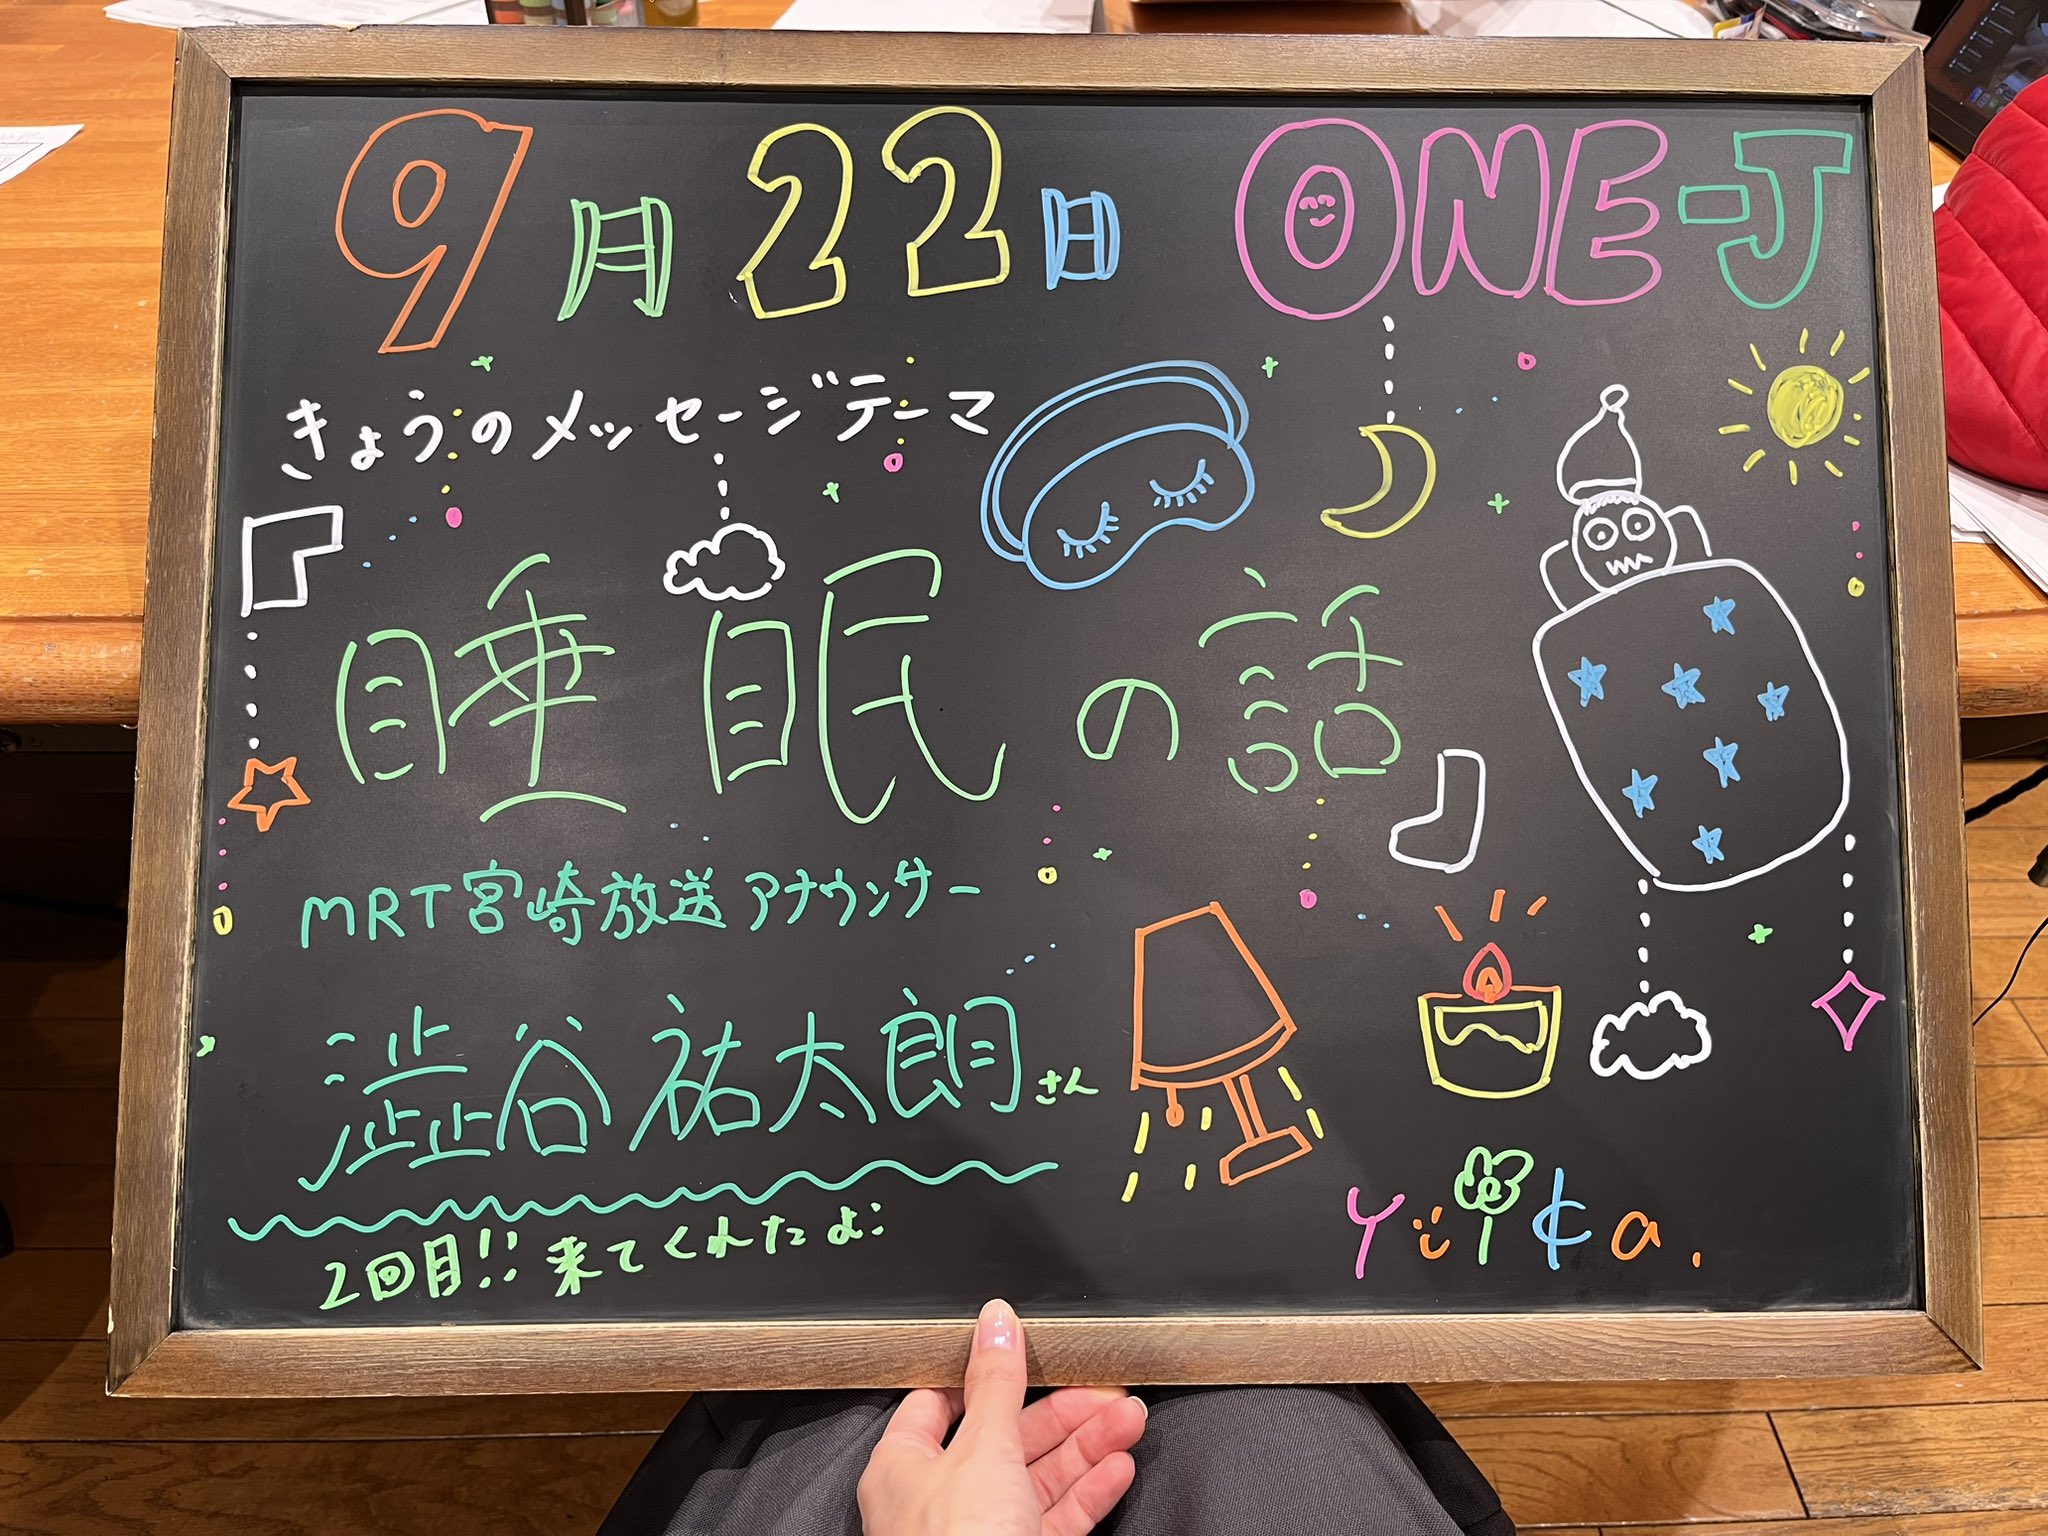 9月22日 ONE-J
きょうのメッセージテーマ
「睡眠の話
MRT宮崎放送アナウンサー
澁谷祐太朗さん
2回目!! 来てくれたよ:
Yuika.